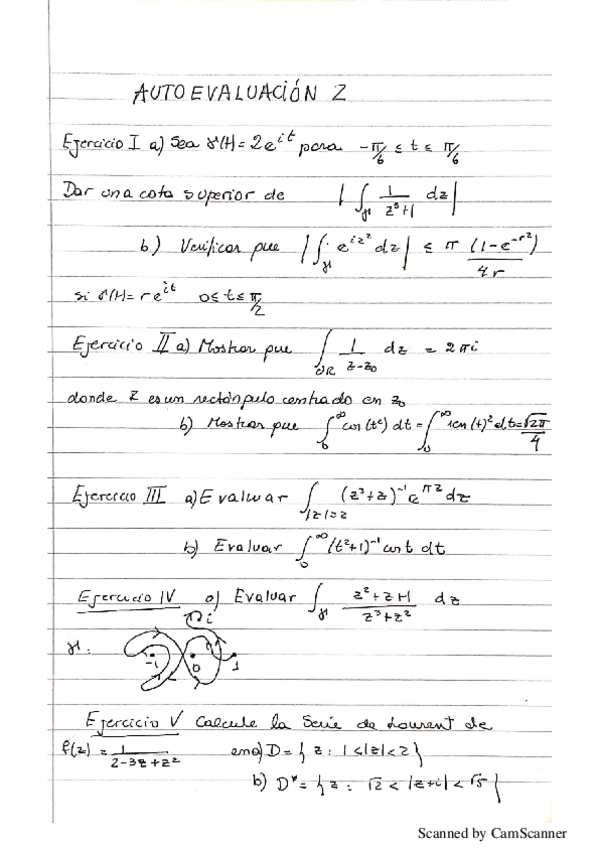 AUTOEVALUACIÓN 2
Ejercicio I a) Sea γ(t) = 2e^{it} para -π/6 ≤ t ≤ π/6
Dar una cota superior de | ∫_γ 1/(z³+1) dz |
b) Verificar que | ∫_γ e^{iz²} dz | ≤ π (1-e^{-r²})/4r
si γ(t) = re^{it} 0 ≤ t ≤ π/2
Ejercicio II a) Mostrar que ∫_{∂R} 1/(z-z₀) dz = 2πi
donde R es un rectángulo centrado en z₀
b) Mostrar que ∫_0^∞ cos(t²) dt = ∫_0^∞ sen(t)² dt = √2π/4
Ejercicio III a) Evaluar ∫_{|z|=2} (z³+z)^{-1} e^{πz} dz
b) Evaluar ∫_0^∞ (t²+1)^{-1} cos t dt
Ejercicio IV a) Evaluar ∫_γ (z²+z+1)/(z³+z²) dz
i
γ: -1 0 1
Ejercicio V Calcule la Serie de Laurent de
f(z) = 1/(2-3z+z²) en a) D = { z : 1 < |z| < 2 }
b) D* = { z : √2 < |z+i| < √5 }
Scanned by CamScanner